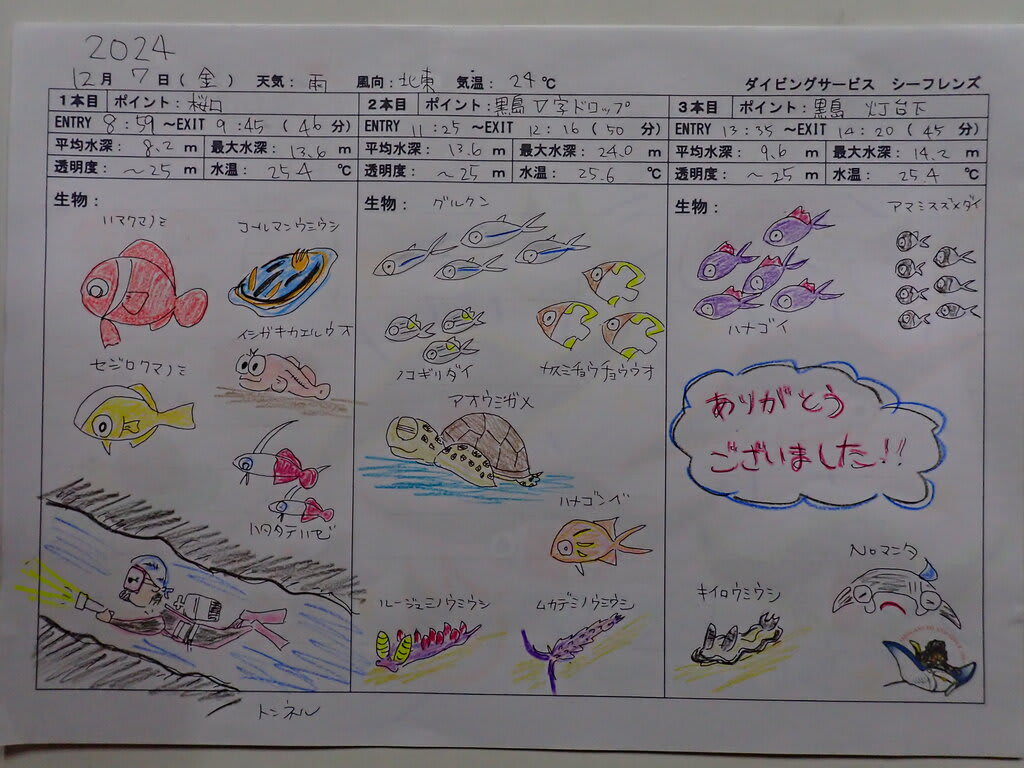 2024
12月 7日(金) 天気: 雨 風向: 北東 気温: 24℃ ダイビングサービス シーフレンズ
1本目 ポイント: 桜口
ENTRY 8:59 ～EXIT 9:45 (46 分)
平均水深: 8.2 m 最大水深: 13.6 m
透明度: ～25 m 水温: 25.4 ℃
生物:
ハマクマノミ
コールマンウミウシ
イシガキカエルウオ
セジロクマノミ
ハタタテハゼ
トンネル
2本目 ポイント: 黒島 V字ドロップ
ENTRY 11:25 ～EXIT 12:16 (50 分)
平均水深: 13.6 m 最大水深: 24.0 m
透明度: ～25 m 水温: 25.6 ℃
生物:
グルクン
ノコギリダイ
カスミチョウチョウウオ
アオウミガメ
ハナゴンベ
ルージュミノウミウシ
ムカデミノウミウシ
3本目 ポイント: 黒島 灯台下
ENTRY 13:35 ～EXIT 14:20 (45 分)
平均水深: 9.6 m 最大水深: 14.2 m
透明度: ～25 m 水温: 25.4 ℃
生物:
アマミスズメダイ
ハナゴイ
ありがとう
ございました!!
Noマンタ
キイロウミウシ